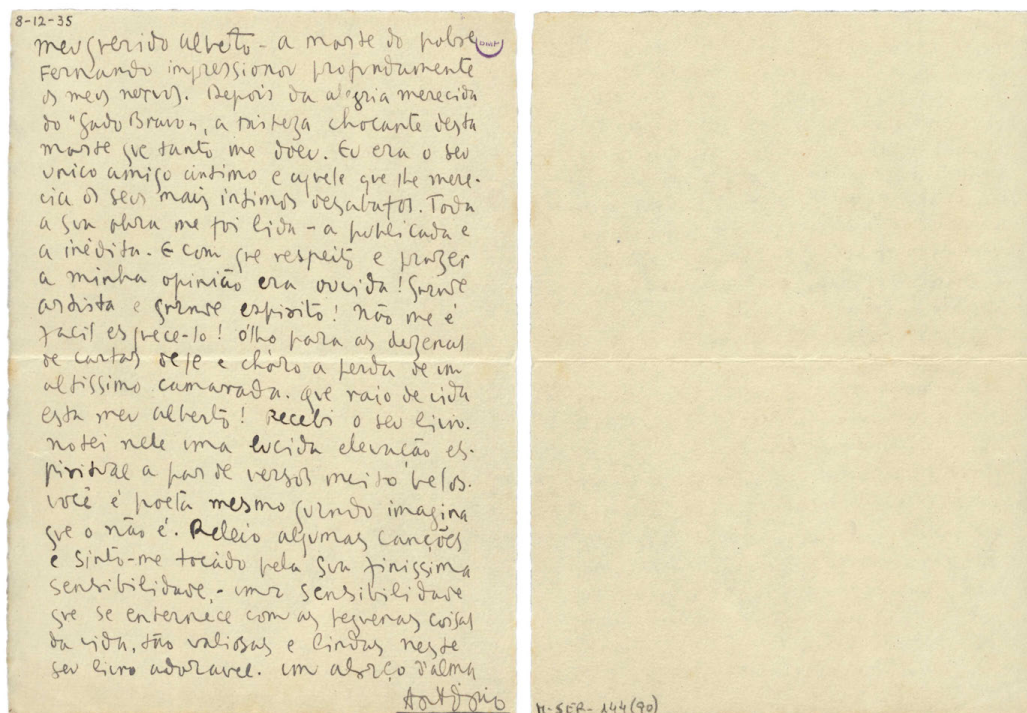 8-12-35
meu querido Alberto - a morte do pobre
Fernando impressionou profundamente
os meus nervos. Depois da alegria merecida
do "Gado Bravo", a tristeza chocante desta
morte que tanto me doeu. Eu era o seu
unico amigo intimo e aquele que lhe mere-
cia os seus mais intimos desabafos. Toda
a sua obra me foi lida - a publicada e
a inédita. E com que respeito e prazer
a minha opinião era ouvida! Grande
artista e grande espirito! Não me é
facil esquece-lo! Ólho para as dezenas
de cartas dele e chóro a perda de um
altissimo camarada. Que raio de vida
esta meu Alberto! Recebi o seu livro.
Notei nele uma lucida elevação es-
piritual a par de versos muito belos.
Você é poeta mesmo quando imagina
que o não é. Releio algumas canções
e sinto-me tocado pela sua finissima
sensibilidade, - uma sensibilidade
que se enternece com as pequenas coisas
da vida, tão valiosas e lindas neste
seu livro adoravel. Um abraço d'alma
António
M-SER-144(90)